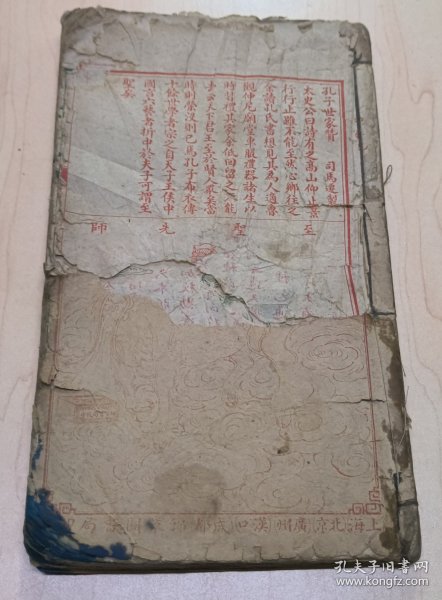 孔子世家贊
司馬遷製
太史公曰詩有之高山仰止景
行行止雖不能至然心鄉往之
余讀孔氏書想見其為人適魯
觀仲尼廟堂車服禮器諸生以
時習禮其家余低回留之不能
去云天下君王至於賢人眾矣當
時則榮沒則已焉孔子布衣傳
十餘世學者宗之自天子王侯中
國言六藝者折中於夫子可謂至
聖矣
至聖先師
上海北京廣州漢口成都
圖書局印
孔夫子旧书网
www.kongfz.com